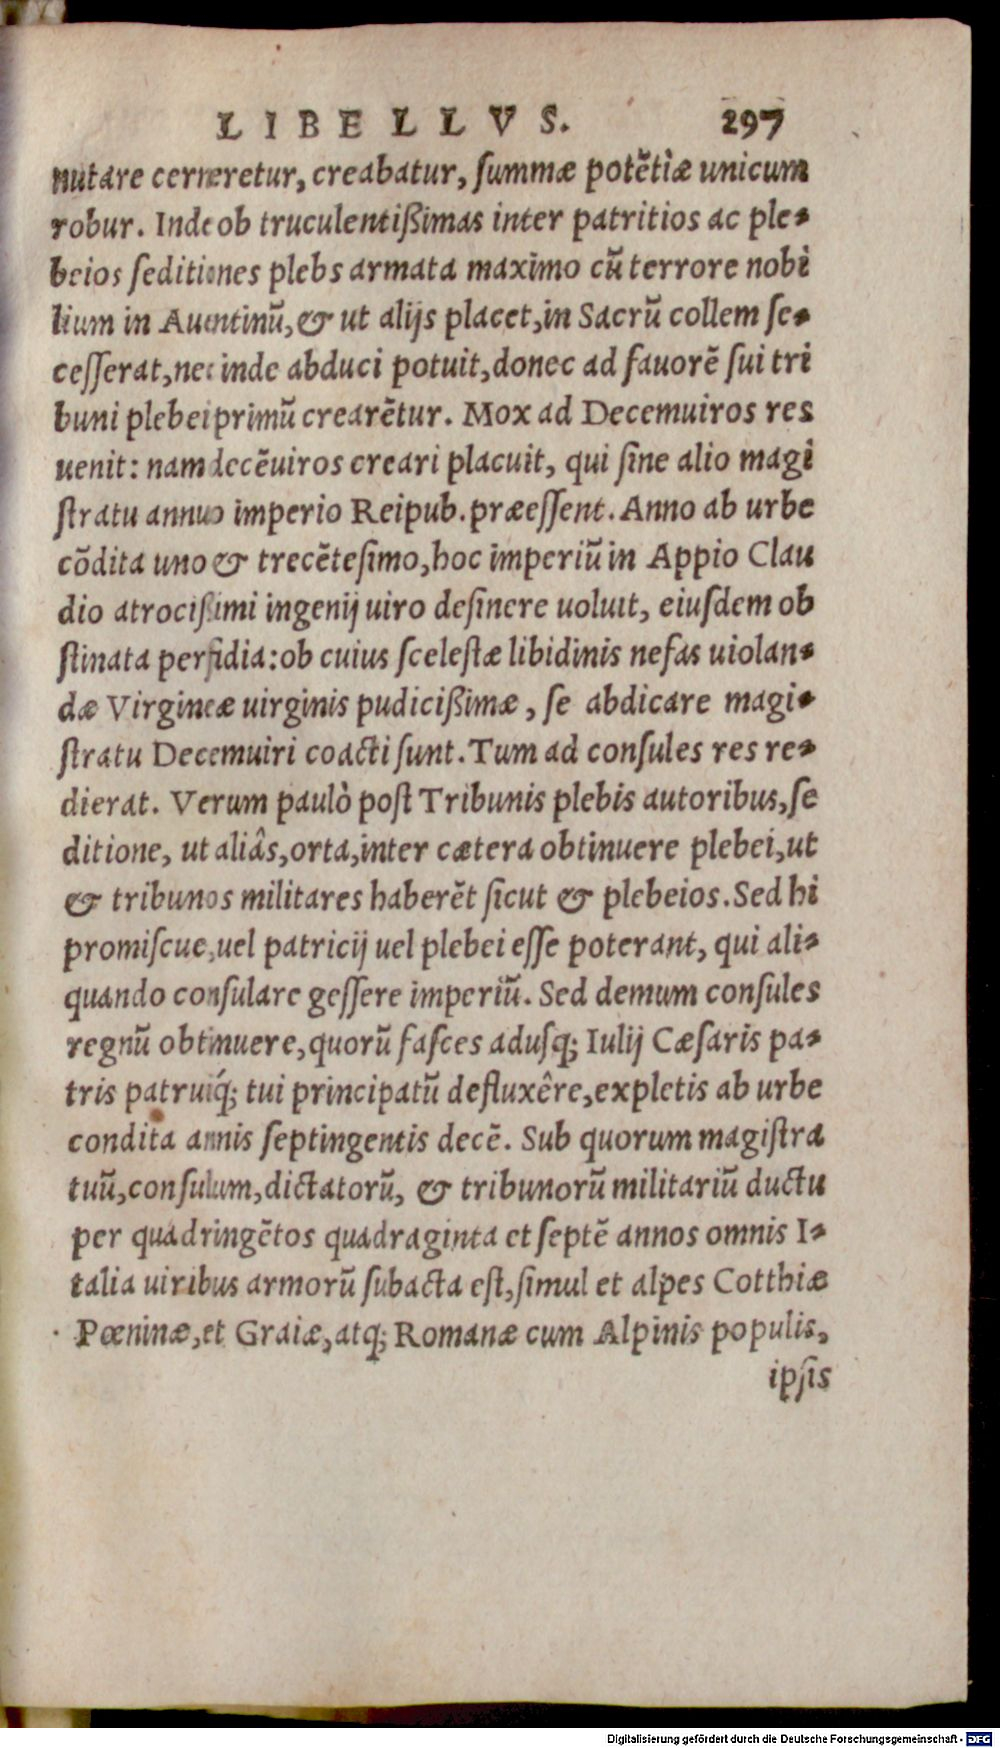 LIBELLVS. 297
nutare cerneretur, creabatur, summæ potẽtiæ unicum
robur. Inde ob truculentißimas inter patritios ac ple-
beios seditiones plebs armata maximo cũ terrore nobi
lium in Auentinũ, & ut alijs placet, in Sacrũ collem se-
cesserat, nec inde abduci potuit, donec ad fauorẽ sui tri
buni plebei primũ crearẽtur. Mox ad Decemuiros res
uenit: nam decẽuiros creari placuit, qui sine alio magi
stratu annuo imperio Reipub. præessent. Anno ab urbe
cõdita uno & trecẽtesimo, hoc imperiũ in Appio Clau
dio atrocißimi ingenij uiro desinere uoluit, eiusdem ob
stinata perfidia: ob cuius scelestæ libidinis nefas uiolan-
dæ Virgineæ uirginis pudicißimæ, se abdicare magi-
stratu Decemuiri coacti sunt. Tum ad consules res re-
dierat. Verum paulò post Tribunis plebis autoribus, se
ditione, ut aliâs, orta, inter cætera obtinuere plebei, ut
& tribunos militares haberẽt sicut & plebeios. Sed hi
promiscue, uel patricij uel plebei esse poterant, qui ali-
quando consulare gessere imperiũ. Sed demum consules
regnũ obtinuere, quorũ fasces adusq; Iulij Cæsaris pa-
tris patruiq́; tui principatũ defluxêre, expletis ab urbe
condita annis septingentis decẽ. Sub quorum magistra
tuũ, consulum, dictatorũ, & tribunorũ militariũ ductu
per quadringẽtos quadraginta et septẽ annos omnis I-
talia uiribus armorũ subacta est, simul et alpes Cotthiæ
Pœninæ, et Graiæ, atq; Romanæ cum Alpinis populis,
ipsis
Digitalisierung gefördert durch die Deutsche Forschungsgemeinschaft - DFG